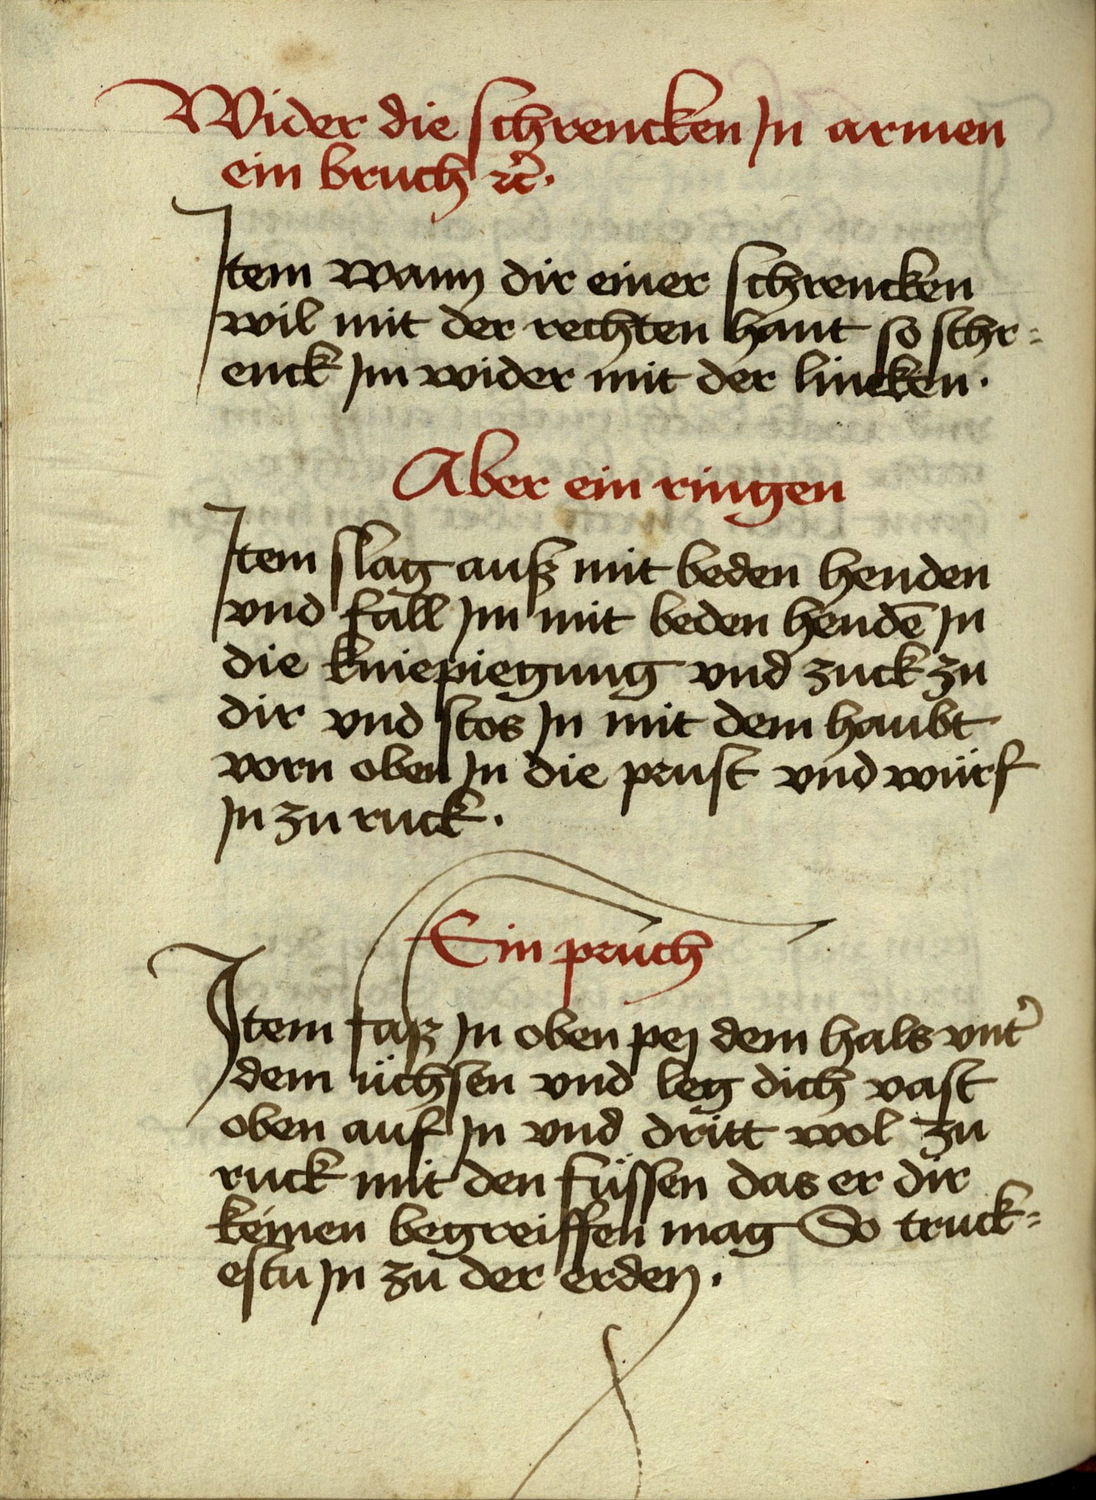 Wider die schrencken Jn armen
ein bruch ꝛc̃.
Jtem wann dir einer schrencken
wil mit der rechten hant so schr=
enck Jm wider mit der lincken.
Aber ein ringen
Jtem slag auß mit beden henden
vnd fall Jm mit beden hendē Jn
die kniepiegung vnd zuck zu
dir vnd stos Jn mit dem haubt
vorn oben Jn die prust vnd würf
Jn zu ruck.
Ein pruch
Jtem faß Jn oben pej dem hals vnt̉
dem üchsen vnd leg dich vast
oben auf Jn vnd dritt wol zu
ruck mit den füssen das er dir
keinen begreiffen mag So truck=
estu Jn zu der erden.